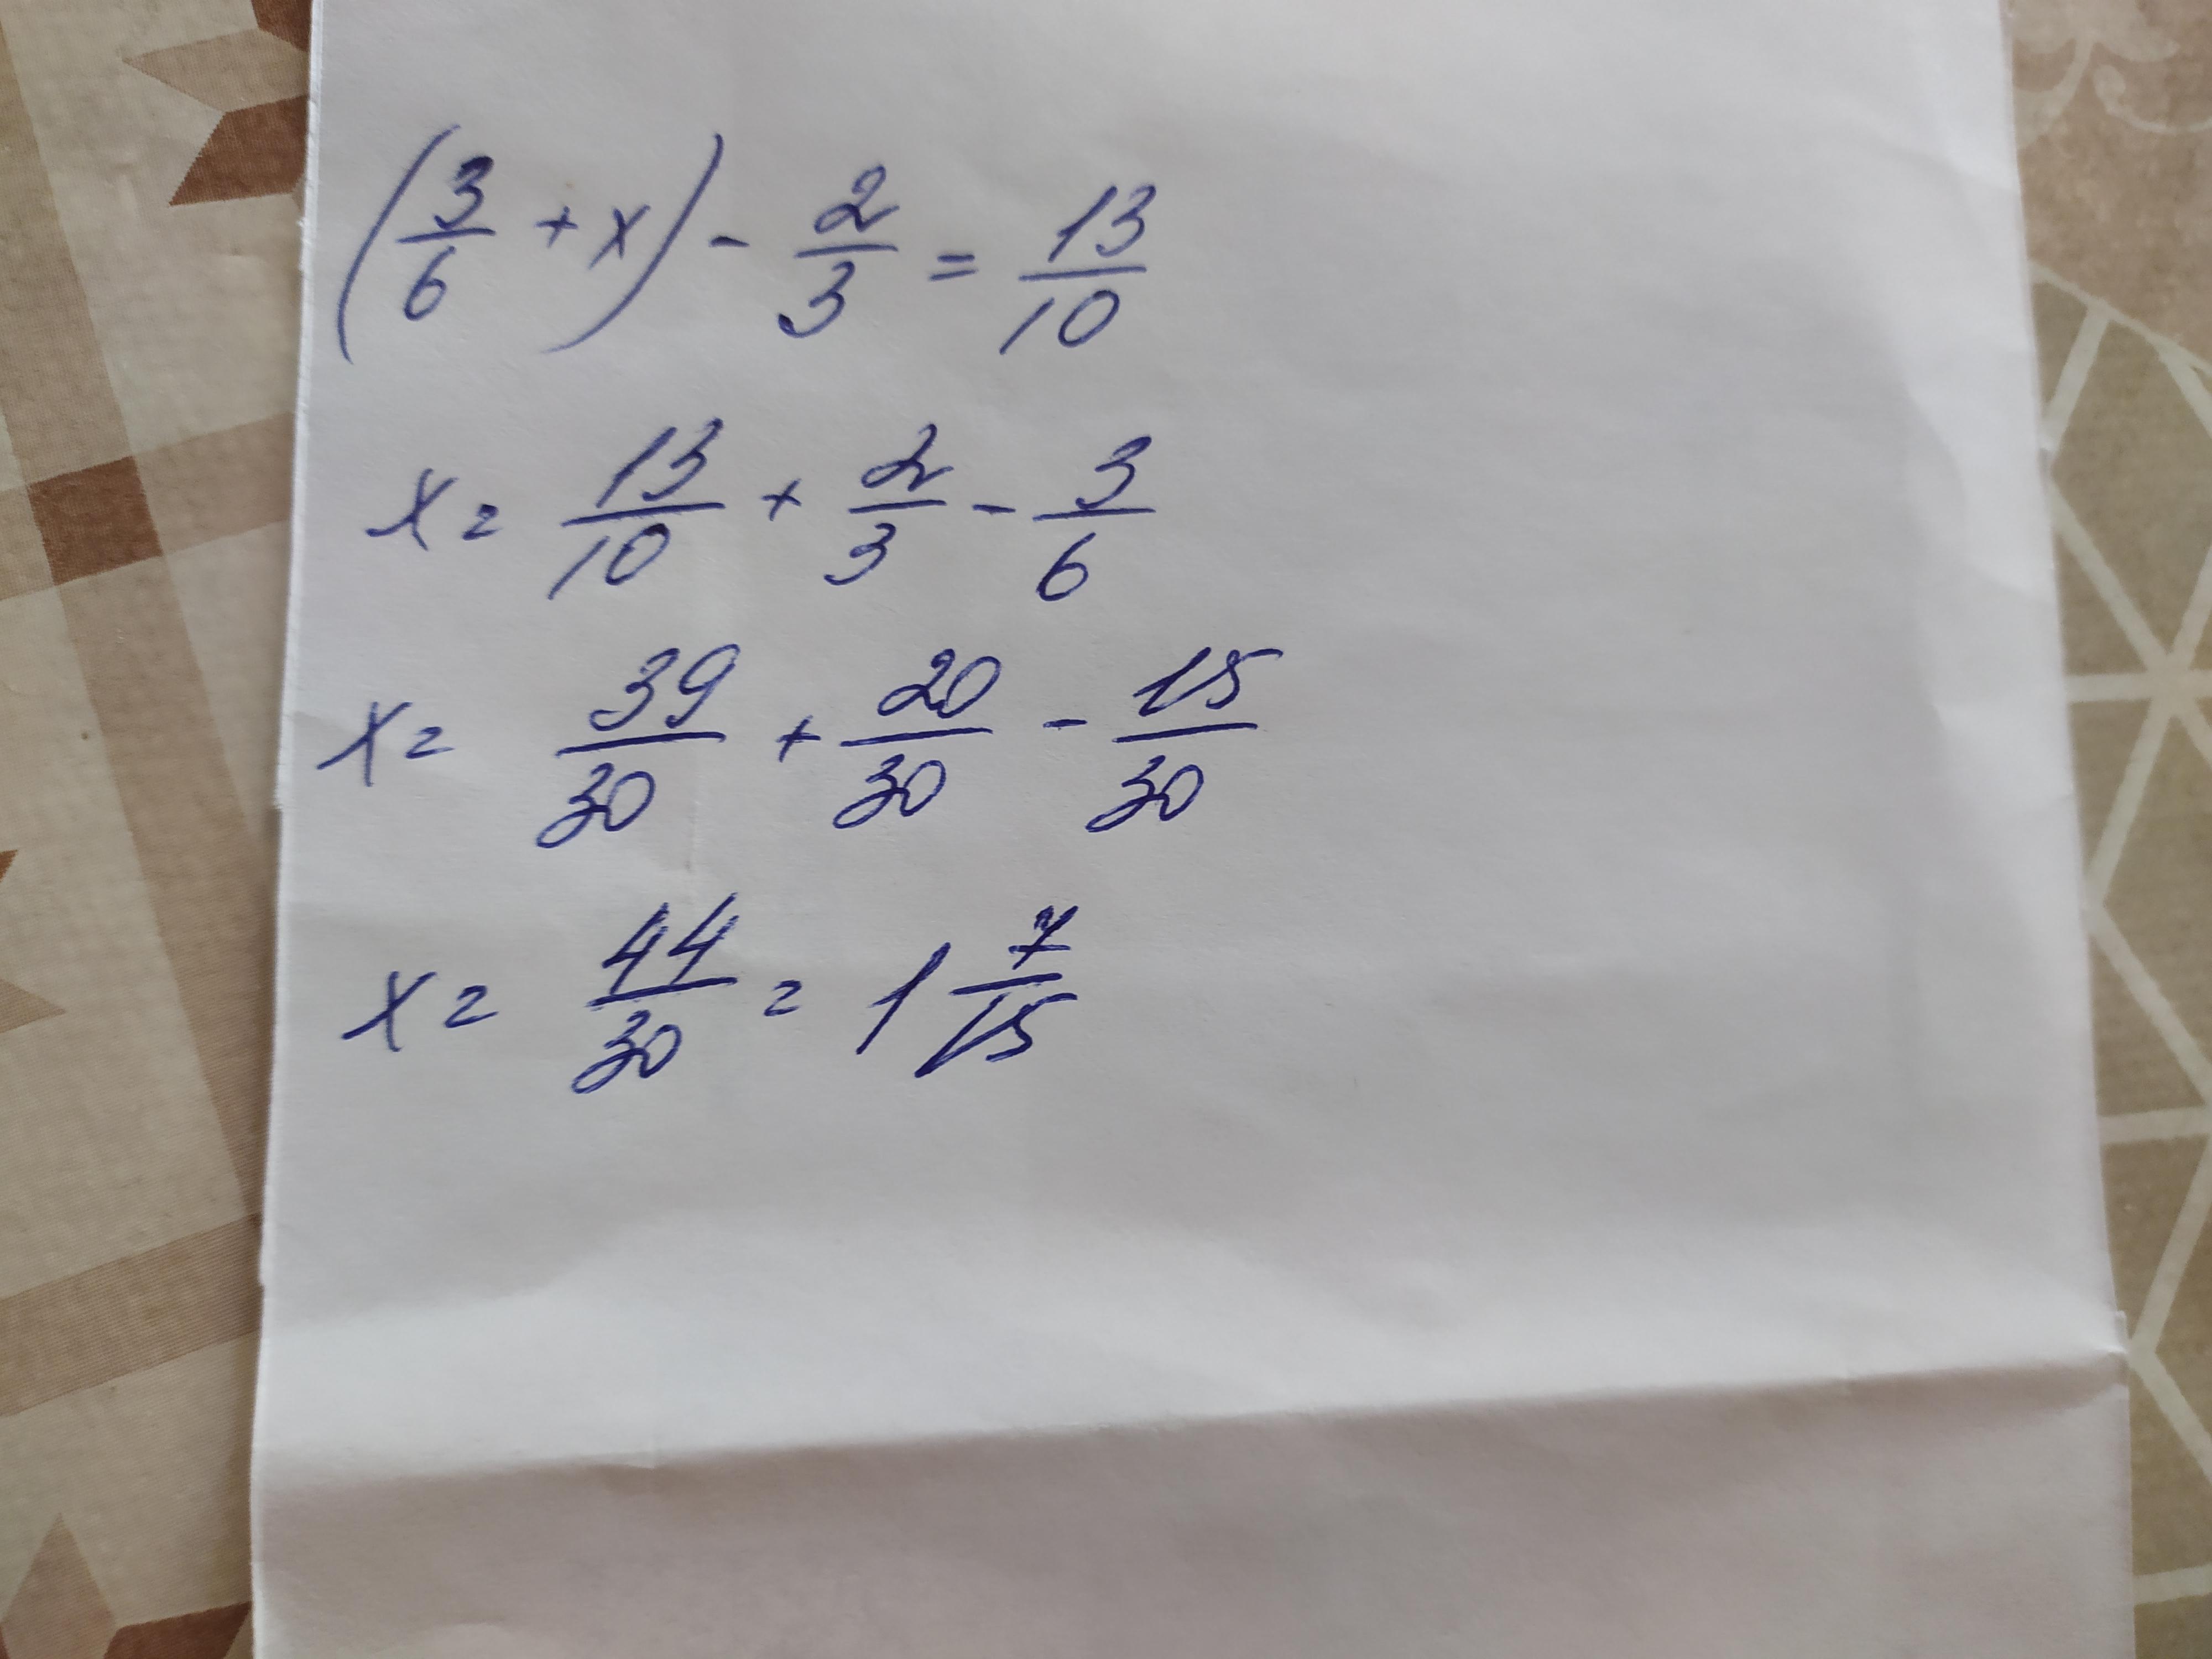 (3/6 + x) - 2/3 = 13/10
x = 13/10 + 2/3 - 3/6
x = 39/30 + 20/30 - 15/30
x = 44/30 = 1 7/15